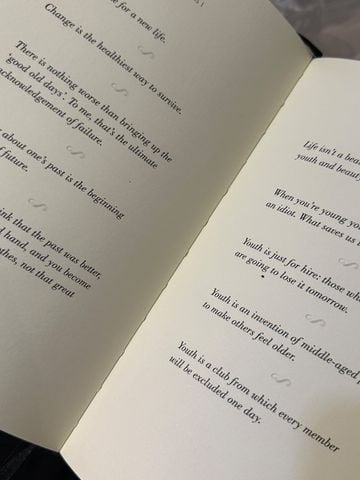 for a new life.
Change is the healthiest way to survive.
There is nothing worse than bringing up the
'good old days'. To me, that's the ultimate
acknowledgement of failure.
about one's past is the beginning
future.
ink that the past was better,
hand, and you become
not that great
Life isn't a
youth and
When you're young
an idiot. What saves us
Youth is just for hire: those
are going to lose it tomorrow.
Youth is an invention of middle-aged
to make others feel older.
Youth is a club from which every member
will be excluded one day.